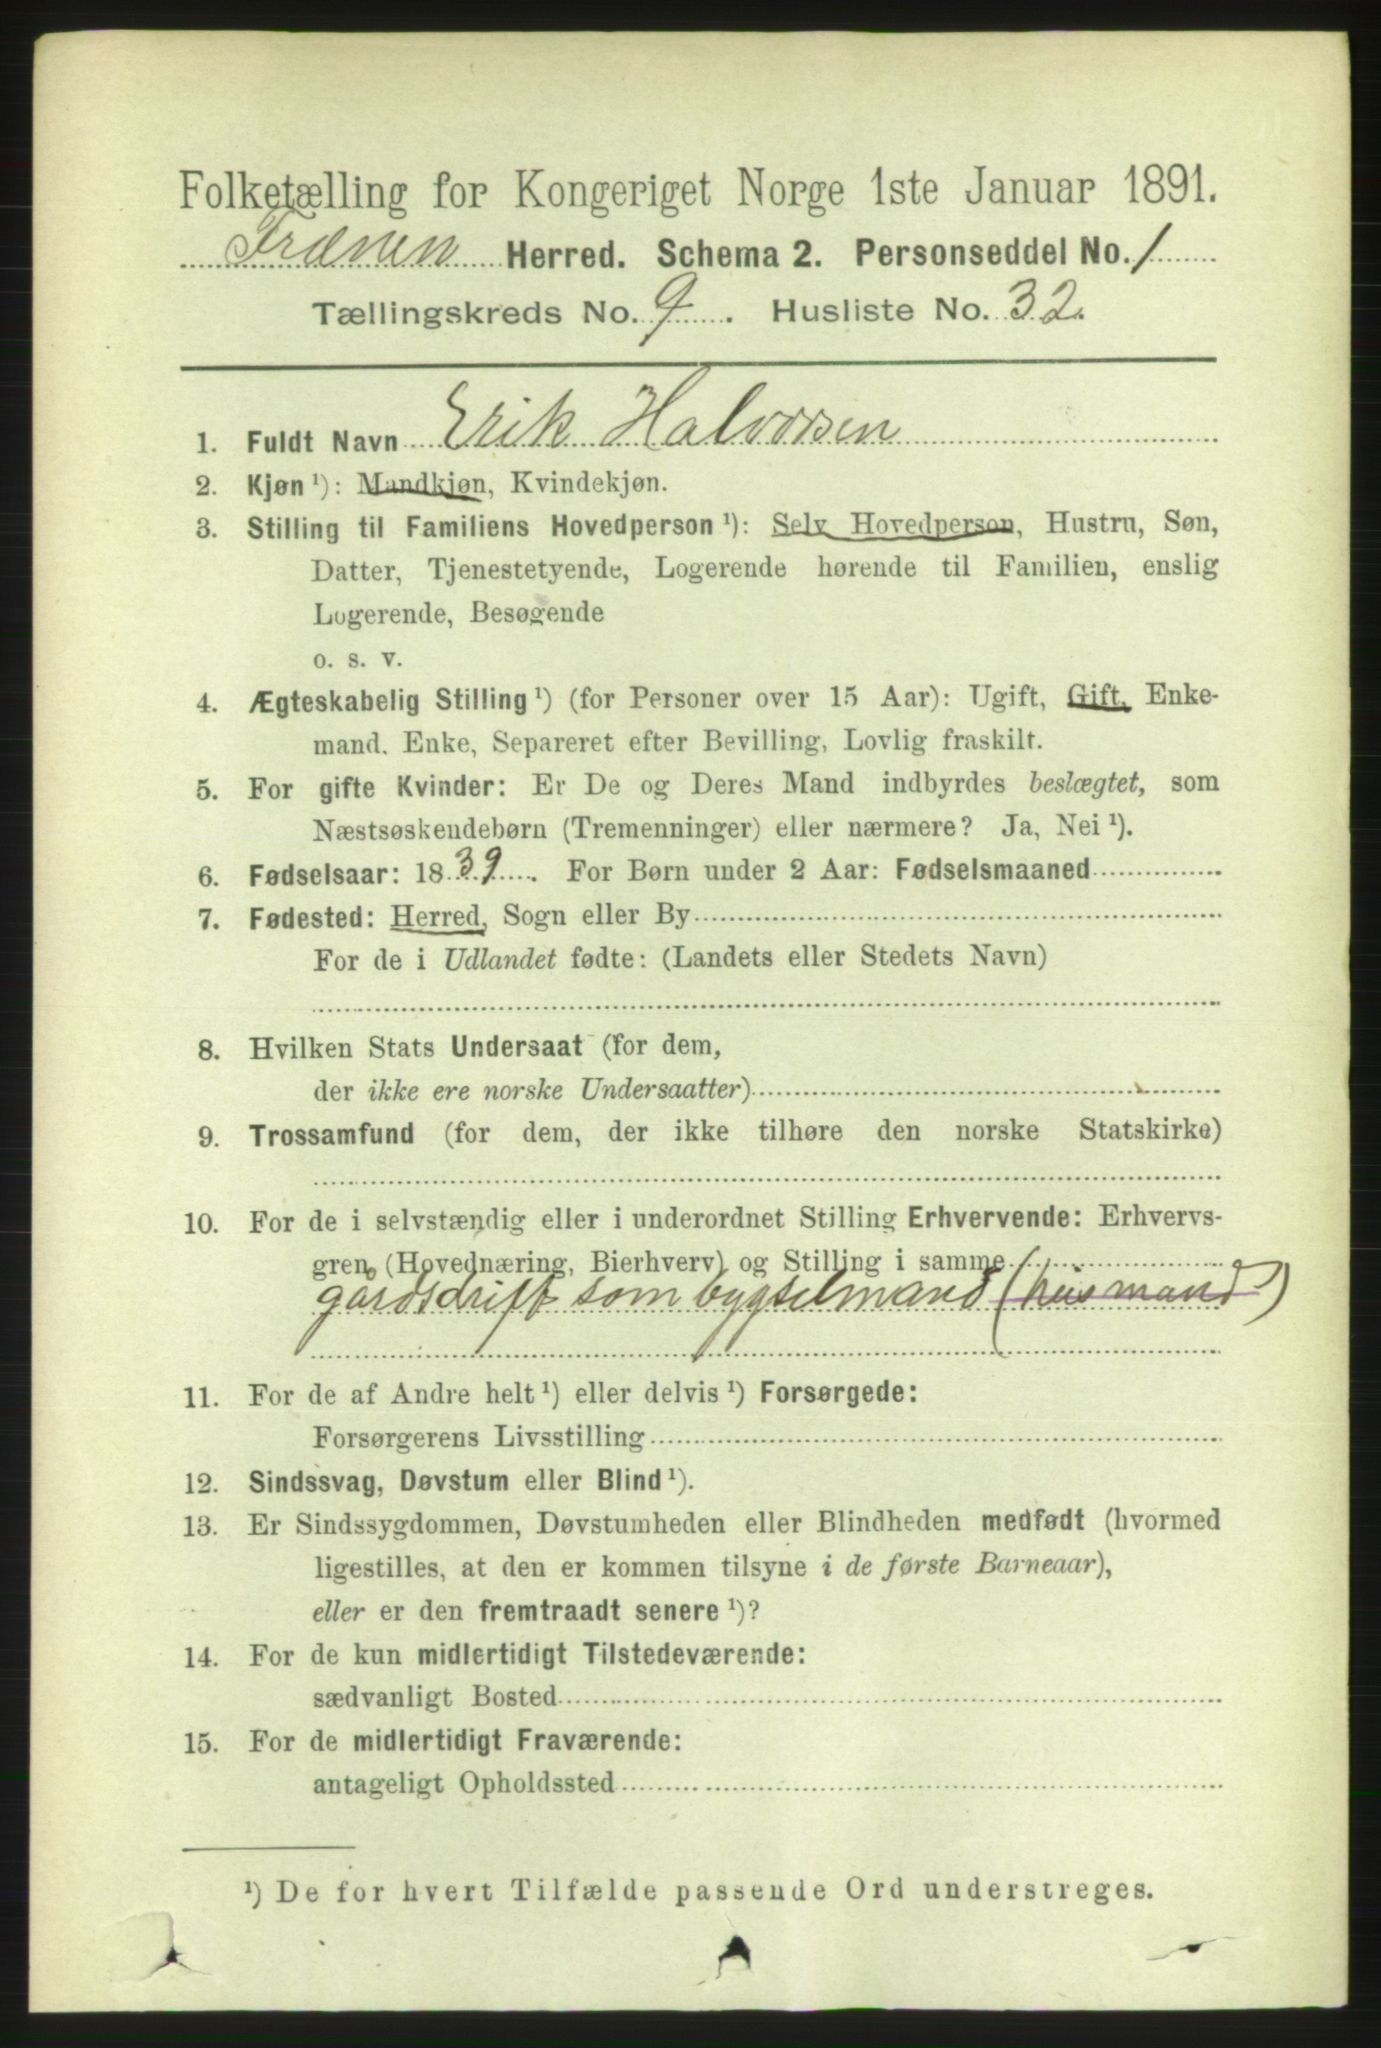 Folketælling for Kongeriget Norge 1ste Januar 1891.
Frænen Herred. Schema 2. Personseddel No. 1
Tællingskreds No. 9. Husliste No. 32.
1. Fuldt Navn Erik Halvorsen
2. Kjøn ¹): Mandkjøn, Kvindekjøn.
3. Stilling til Familiens Hovedperson ¹): Selv Hovedperson, Hustru, Søn,
Datter, Tjenestetyende, Logerende hørende til Familien, enslig
Logerende, Besøgende
o. s. v.
4. Ægteskabelig Stilling ¹) (for Personer over 15 Aar): Ugift, Gift, Enke-
mand, Enke, Separeret efter Bevilling, Lovlig fraskilt.
5. For gifte Kvinder: Er De og Deres Mand indbyrdes beslægtet, som
Næstsøskendebørn (Tremenninger) eller nærmere? Ja, Nei ¹).
6. Fødselsaar: 1839. For Børn under 2 Aar: Fødselsmaaned
7. Fødested: Herred, Sogn eller By
For de i Udlandet fødte: (Landets eller Stedets Navn)
8. Hvilken Stats Undersaat (for dem,
der ikke ere norske Undersaatter)
9. Trossamfund (for dem, der ikke tilhøre den norske Statskirke)
10. For de i selvstændig eller i underordnet Stilling Erhvervende: Erhvervs-
gren (Hovednæring, Bierhverv) og Stilling i samme
gårdsdrift som bygselmand (husmand)
11. For de af Andre helt ¹) eller delvis ¹) Forsørgede:
Forsørgerens Livsstilling
12. Sindssvag, Døvstum eller Blind ¹).
13. Er Sindssygdommen, Døvstumheden eller Blindheden medfødt (hvormed
ligestilles, at den er kommen tilsyne i de første Barneaar),
eller er den fremtraadt senere ¹)?
14. For de kun midlertidigt Tilstedeværende:
sædvanligt Bosted
15. For de midlertidigt Fraværende:
antageligt Opholdssted
¹) De for hvert Tilfælde passende Ord understreges.